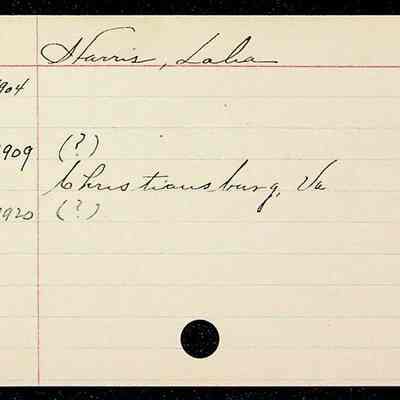 Harris, Lola
1904
1909 (?)
Christiansburg, Va
1920 (?)